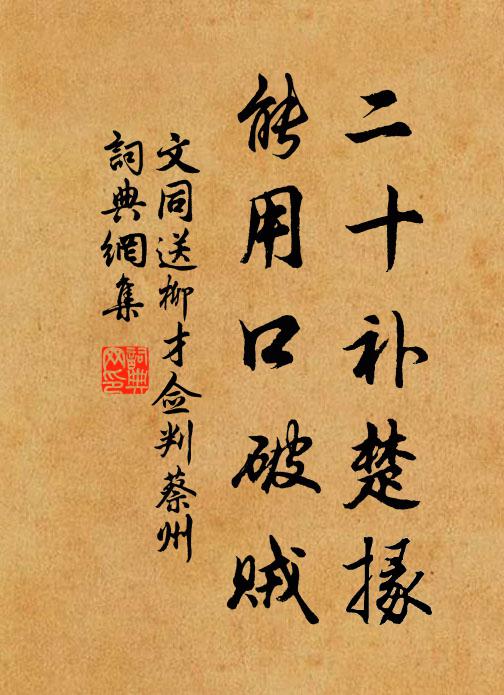 二十补楚掾
能用口破贼
文同送柳才佥判蔡州
詞典網集
詞典网印